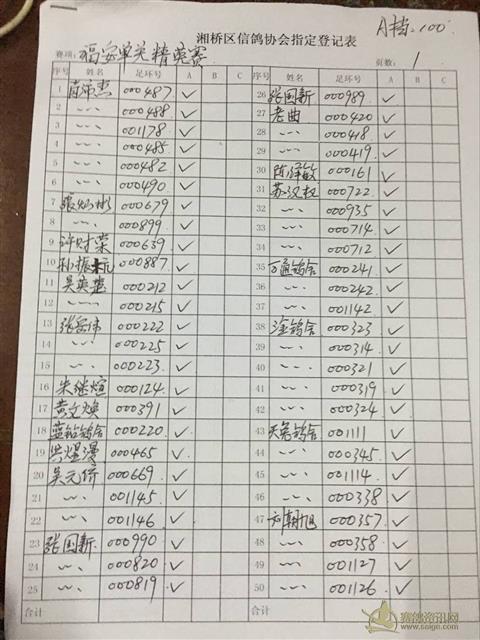 A档:100
湘桥区信鸽协会指定登记表
赛项: 福安单关精英赛 页数: 1
序号 姓名 足环号 A B C 序号 姓名 足环号 A B C
1 000487 ✓ 26 张国新 000989 ✓
2 〃 000488 ✓ 27 老曲 000420 ✓
3 〃 001178 ✓ 28 〃 000418 ✓
4 〃 000485 ✓ 29 〃 000419 ✓
5 〃 000482 ✓ 30 陈泽敏 000161 ✓
6 〃 000490 ✓ 31 苏汉权 000722 ✓
7 000679 ✓ 32 〃 000935 ✓
8 〃 000899 ✓ 33 〃 000714 ✓
9 许财荣 000639 ✓ 34 〃 000712 ✓
10 000887 ✓ 35 万通鸽舍 000241 ✓
11 000212 ✓ 36 〃 000242 ✓
12 〃 000215 ✓ 37 〃 001142 ✓
13 000222 ✓ 38 淦鸽舍 000323 ✓
14 〃 000225 ✓ 39 〃 000314 ✓
15 〃 000223 ✓ 40 〃 000321 ✓
16 朱继煊 000124 ✓ 41 〃 000319 ✓
17 黄文焕 000391 ✓ 42 〃 000324 ✓
18 鸽舍 000220 ✓ 43 鸽舍 001111 ✓
19 000465 ✓ 44 〃 000345 ✓
20 吴元侨 000669 ✓ 45 〃 001114 ✓
21 〃 001145 ✓ 46 〃 000338 ✓
22 〃 001146 ✓ 47 刘朝旭 000357 ✓
23 张国新 000990 ✓ 48 〃 000358 ✓
24 〃 000820 ✓ 49 〃 001127 ✓
25 〃 000819 ✓ 50 〃 001126 ✓
合计 合计
赛鸽资讯网
www.saige.com